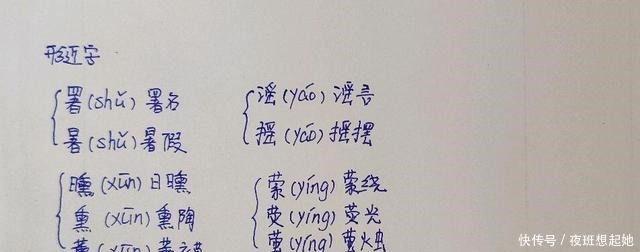 形近字
署(shǔ)署名
暑(shǔ)暑假
谣(yáo)谣言
摇(yáo)摇摆
曛(xūn)日曛
熏(xūn)熏陶
萦(yíng)萦绕
荧(yíng)荧光
萤(yíng)萤火虫
快传号/夜班想起她